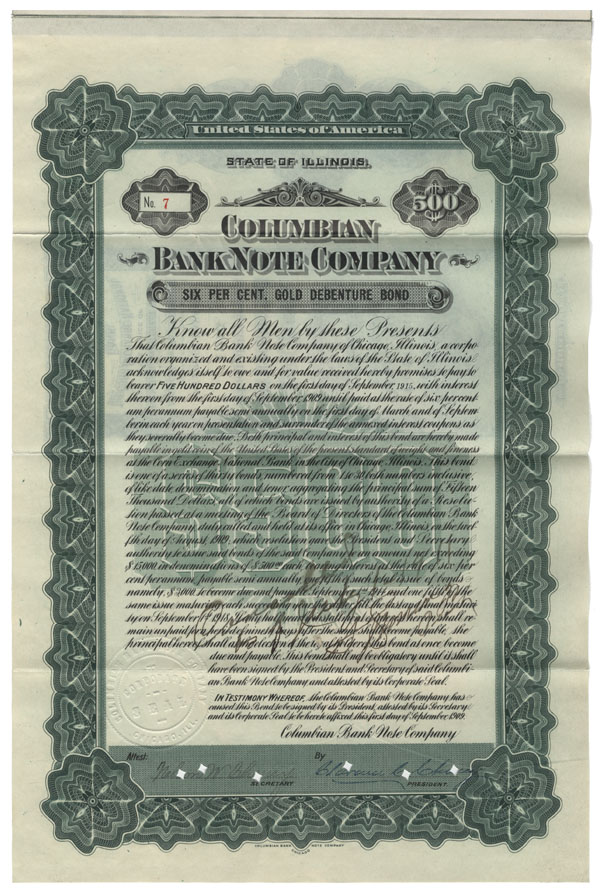 United States of America
STATE OF ILLINOIS.
No. 7
500
COLUMBIAN
BANK NOTE COMPANY
SIX PER CENT. GOLD DEBENTURE BOND
Know all Men by these Presents
That Columbian Bank Note Company of Chicago, Illinois, a corpo-
ration organized and existing under the laws of the State of Illinois
acknowledges itself to owe and for value received hereby promises to pay to
bearer FIVE HUNDRED DOLLARS on the first day of September 1915, with interest
thereon from the first day of September 1909 until paid at the rate of six per cent
per annum payable semi annually on the first day of March and of Septem-
ber in each year on presentation and surrender of the annexed interest coupons as
they severally become due. Both principal and interest of this bond are hereby made
payable in gold coin of the United States of the present standard of weight and fineness
at the Corn Exchange National Bank in the City of Chicago, Illinois. This bond
is one of a series of thirty bonds numbered from 1 to 30 both numbers inclusive,
of like date, denomination and tenor, aggregating the principal sum of Fifteen
Thousand Dollars, all of which bonds are issued by authority of a Resolu-
tion passed at a meeting of the Board of Directors of the Columbian Bank
Note Company, duly called and held at its office in Chicago, Illinois, on the twel-
fth day of August, 1909, which resolution gave the President and Secretary
authority to issue said bonds of the said Company to an amount not exceeding
$15000 in denominations of $500 each bearing interest at the rate of six per
cent per annum, payable semi annually, one fifth of such total issue of bonds
namely, $3000, to become due and payable September 1st and one fifth of the
same issue maturing each succeeding year thereafter till the last and final matur-
ity on September 1st 1915. If any installment of interest hereon shall re-
main unpaid for a period of ninety days after the same shall become payable, the
principal hereof shall at the election of the holder of this bond at once become
due and payable. This bond shall not be obligatory until it shall
have been signed by the President and Secretary of said Columbi-
an Bank Note Company and attested by its Corporate Seal.
IN TESTIMONY WHEREOF, the Columbian Bank Note Company has
caused this Bond to be signed by its President, attested by its Secretary
and its Corporate Seal to be hereto affixed this first day of September 1909.
Columbian Bank Note Company
Attest:
By
SECRETARY
PRESIDENT.
COLUMBIAN BANK NOTE COMPANY
CHICAGO